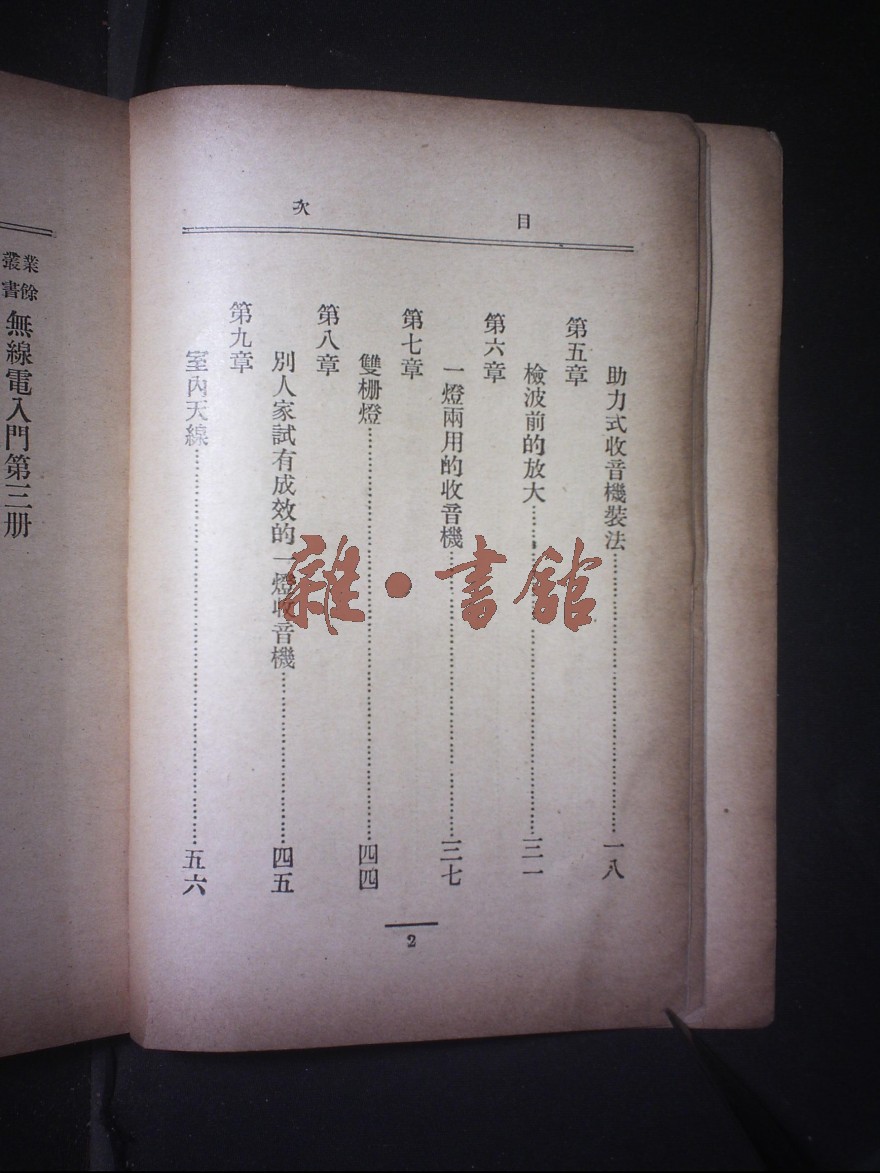 目次
助力式收音機裝法……一八
第五章
檢波前的放大……三一
第六章
一燈兩用的收音機……三七
第七章
雙栅燈……四四
第八章
別人家試有成效的一燈收音機……四五
第九章
室內天線……五六
2
業餘叢書 無線電入門第三册
雜·書館